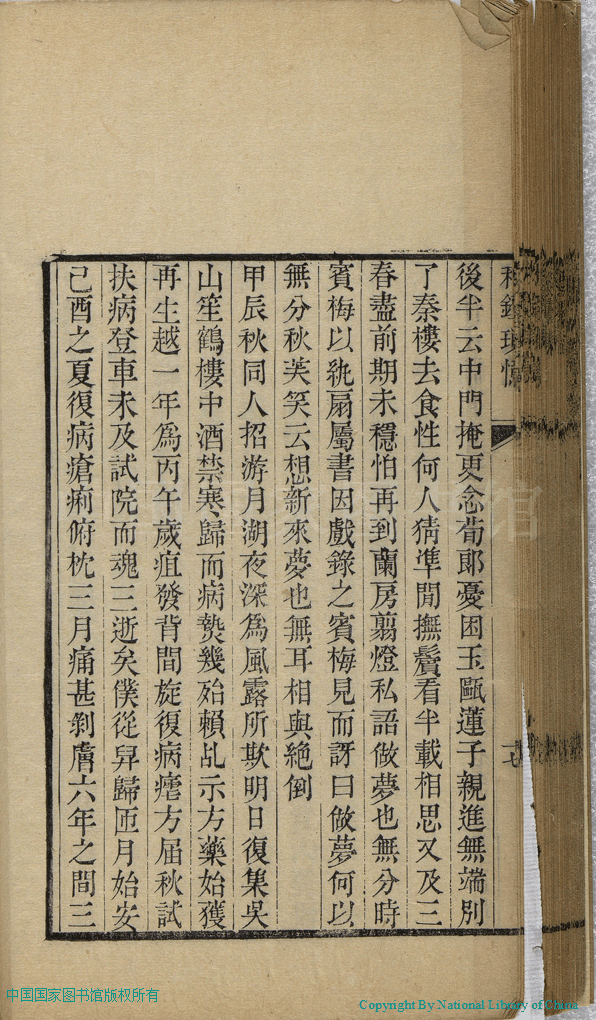 後半云中門掩更念荀郎憂困玉甌蓮子親進無端別
了秦樓去食性何人猜準閒撫鬢看半載相思又及三
春盡前期未穩怕再到蘭房翦燈私語做夢也無分時
賓梅以紈扇屬書因戲錄之賓梅見而訝曰做夢何以
無分秋芙笑云想新來夢也無耳相與絕倒
甲辰秋同人招游月湖夜深為風露所欺明日復集吳
山笙鶴樓中酒禁寒歸而病熱幾殆賴乩示方藥始獲
再生越一年為丙午歲疽發背間旋復病瘧方届秋試
扶病登車未及試院而魂三逝矣僕從舁歸匝月始安
己酉之夏復病瘡痢俯枕三月痛甚剝膚六年之間三
中国国家图书馆版权所有
Copyright By National Library of China